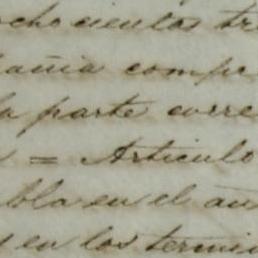 ochocientos tr
añia compe
a parte corre
= Articulo
bla en el au
en los termi